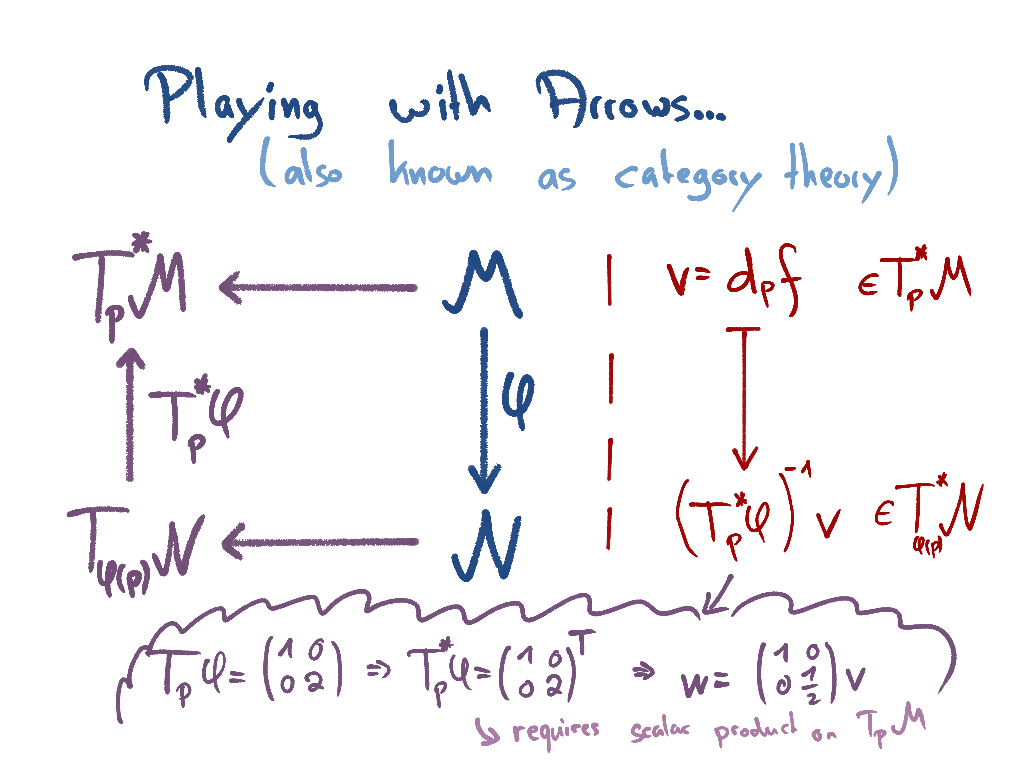 Playing with Arrows...
(also known as category theory)
T*ₚM ← M | v = dₚf ∈ T*ₚM
T*ₚφ φ
T_φ(p)N ← N | (T*ₚφ)⁻¹ v ∈ T*_φ(p)N
Tₚφ = (1 0; 0 2) ⇒ T*ₚφ = (1 0; 0 2)ᵀ ⇒ w = (1 0; 0 1/2) v
↳ requires scalar product on TₚM